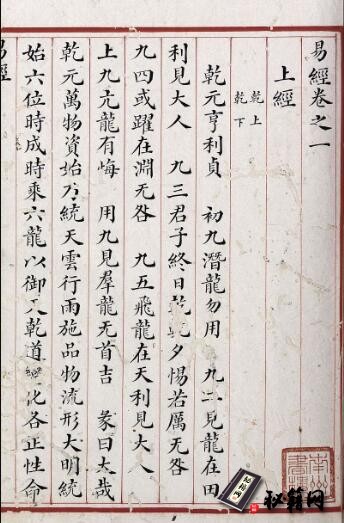 易經卷之一
上經
乾上
乾下
乾元亨利貞 初九潛龍勿用 九二見龍在田
利見大人 九三君子終日乾乾夕惕若厲无咎
九四或躍在淵无咎 九五飛龍在天利見大人
上九亢龍有悔 用九見羣龍无首吉 彖曰大哉
乾元萬物資始乃統天雲行雨施品物流形大明終
始六位時成時乘六龍以御天乾道變化各正性命
易經
秘籍网
秘籍网